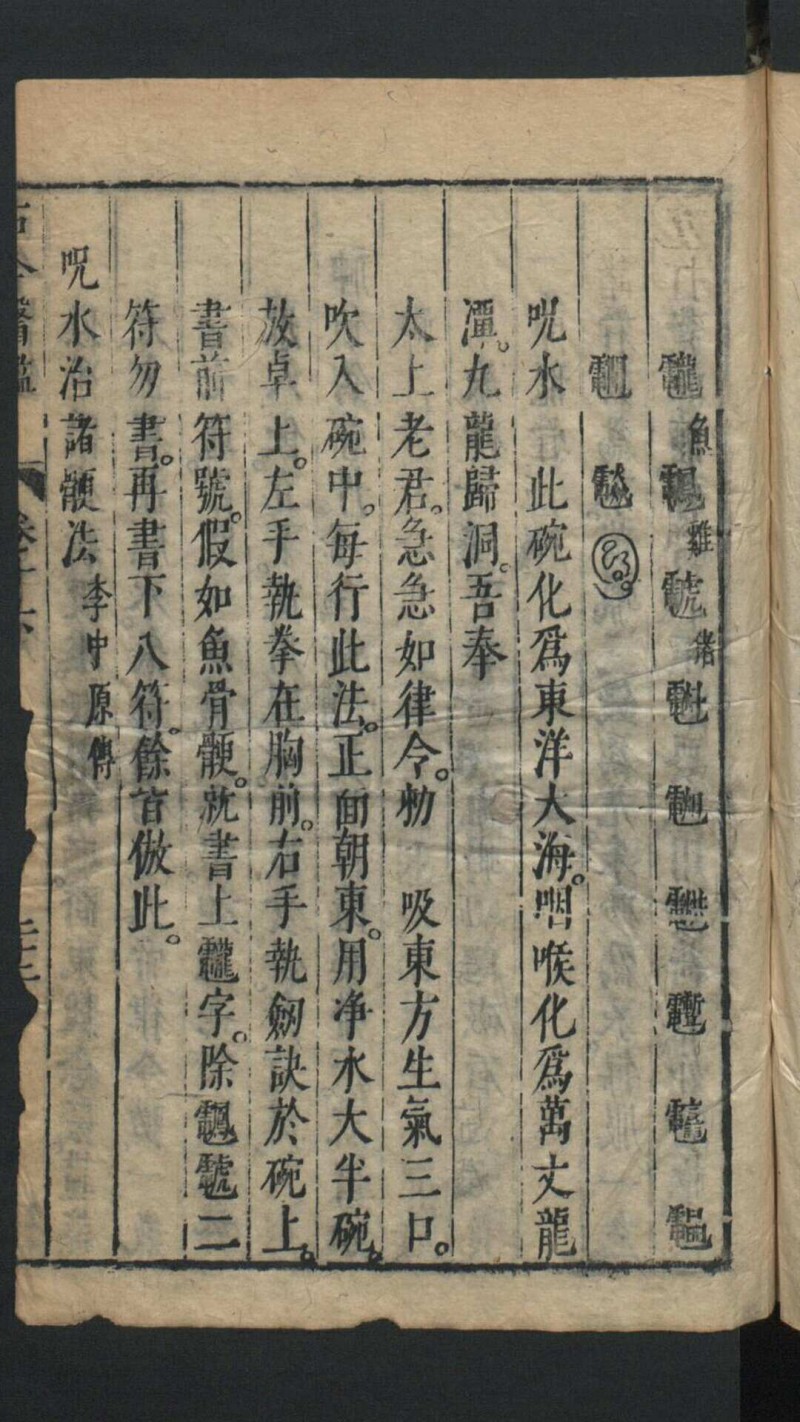 魚 雞 猪
呪水 此碗化爲東洋大海。咽喉化爲萬丈龍
潭。九龍歸洞。吾奉
太上老君。急急如律令。勑 吸東方生氣三口。
吹入碗中。每行此法。正面朝東。用净水大半碗。
放卓上。左手執拳在胸前。右手執劒訣於碗上。
書前符號。假如魚骨骾。就書上字。除二
符勿書。再書下八符。餘皆倣此。
呪水治諸骾法 李中原傳
古今醫鑑